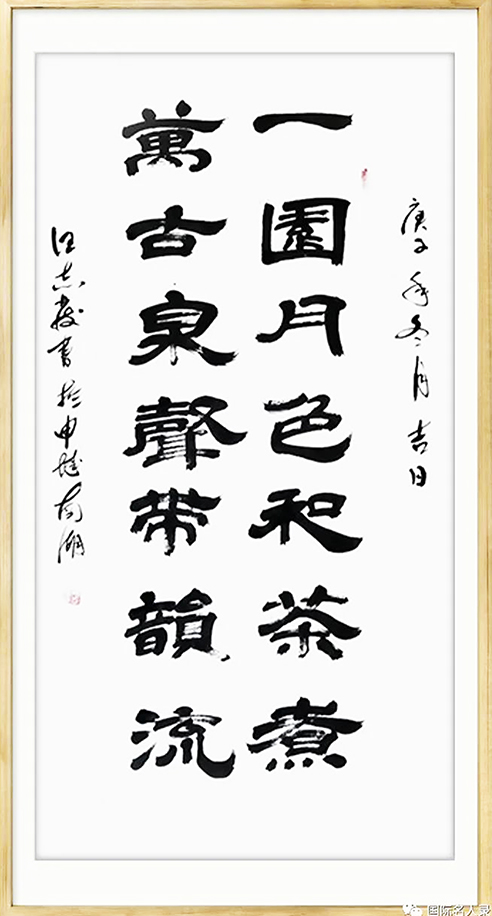 庚子年冬月吉日
一園月色和茶煮
萬古泉聲帶韻流
汪志发書於申城南湖
国际名人录